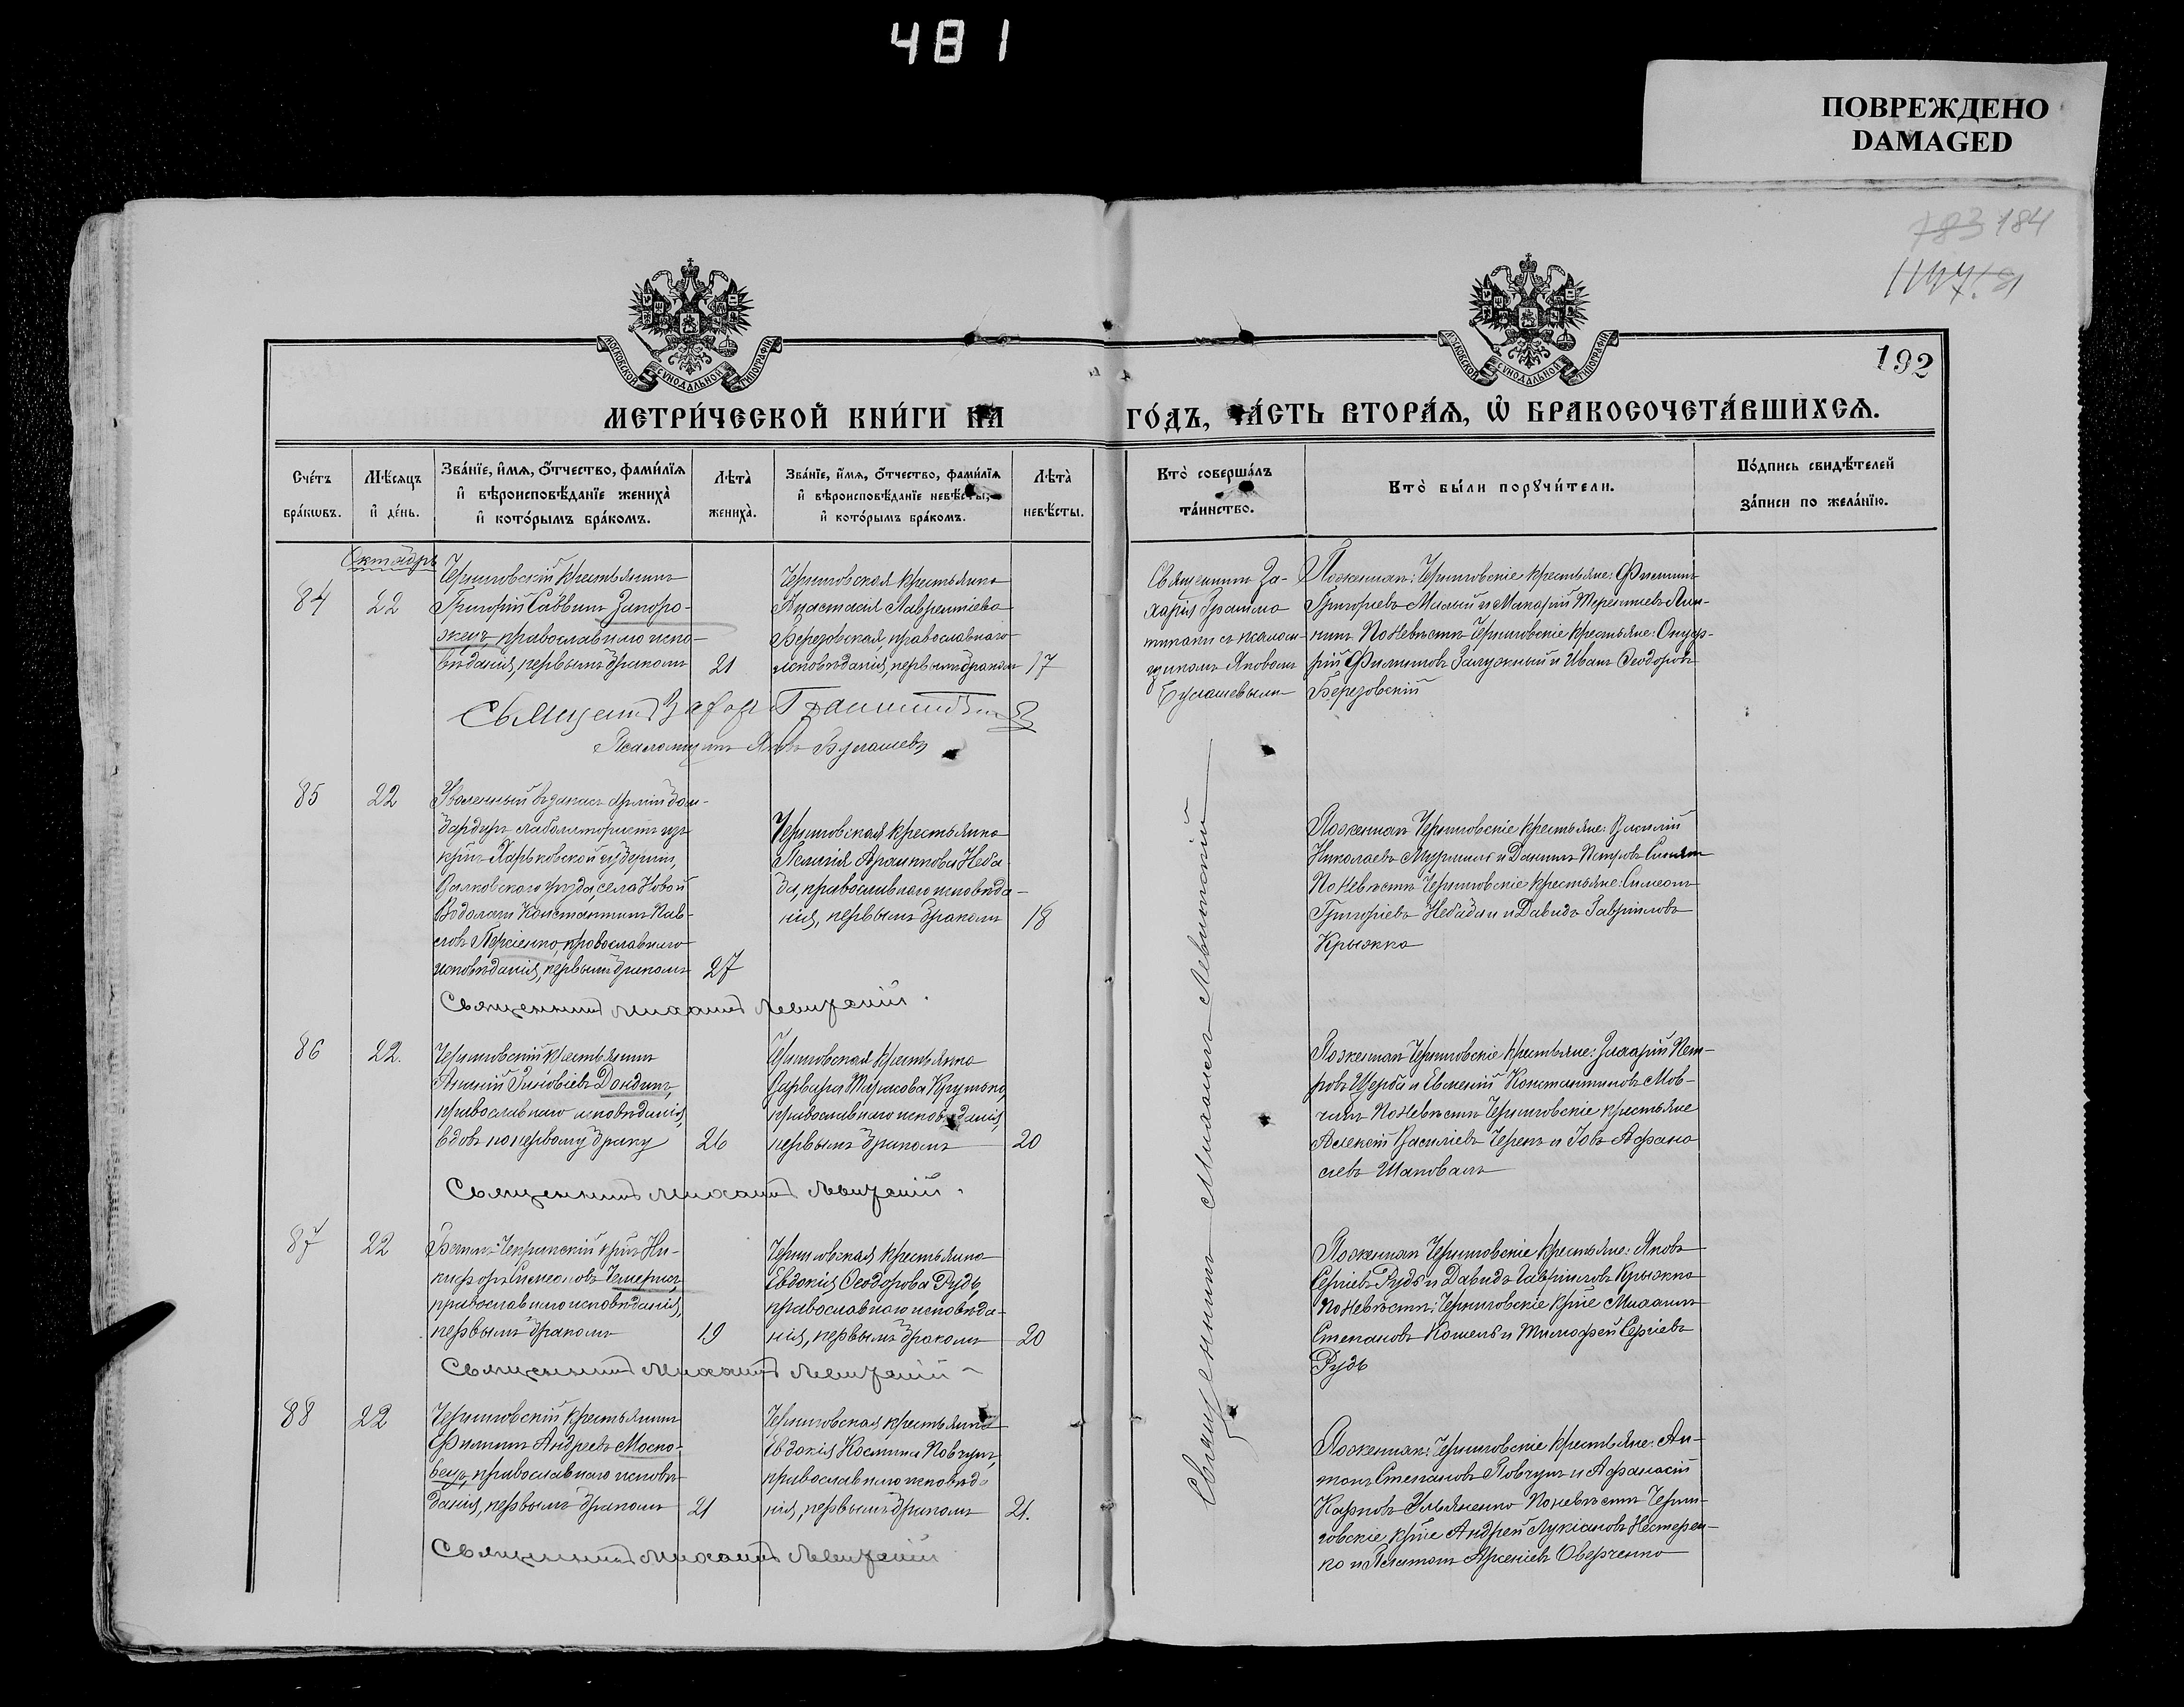 481
ПОВРЕЖДЕНО
DAMAGED
183 184
192
МОСКОВСКОЙ СѴНОДАЛЬНОЙ ТИПОГРАФІИ
МОСКОВСКОЙ СѴНОДАЛЬНОЙ ТИПОГРАФІИ
МЕТРИ́ЧЕСКОЙ КНИ́ГИ НА ГО́ДЪ, ЧА́СТЬ ВТОРА́Я, Ѽ БРАКОСОЧЕТА́ВШИХСѦ.
Сче́тъ
бра́кѡвъ.
Мѣ́сяцъ
и҆ де́нь.
Зва́нїе, и҆́мя, ѻ҆́тчество, фами́лїя
и҆ вѣроисповѣ́данїе жениха̀
и҆ кото́рымъ бра́комъ.
Лѣта̀
жениха̀.
Зва́нїе, и҆́мя, ѻ҆́тчество, фами́лїя
и҆ вѣроисповѣ́данїе невѣ́сты,
и҆ кото́рымъ бра́комъ.
Лѣта̀
невѣ́сты.
Кто̀ соверша́лъ
та́инство.
Кто̀ бы́ли порꙋчи́тели.
По́дпись свидѣ́телей
за́писи по жела́нїю.
Октябрь
84
22
Черниговскій крестьянинъ
Григорій Саввинъ Запоро-
жецъ, православнаго испо-
вѣданія, первымъ бракомъ
21
Черниговская крестьянка
Анастасія Лаврентіева
Березовская, православнаго
исповѣданія, первымъ бракомъ
17
Священникъ За-
харія Грамма
тикати съ псалом-
щикомъ Яковомъ
Булашевымъ
По женихѣ: Черниговскіе крестьяне: Филиппъ
Григорьевъ Милый и Макарій Терентіевъ
По невѣстѣ Черниговскіе крестьяне: Онуф-
рій Филиповъ Залужный и Иванъ Ѳеодоровъ
Березовскій
Псаломщикъ Яковъ Булашевъ
85
22
Уволенный въ запасъ арміи бом-
бардиръ лаборатористъ изъ
кр–нъ Харьковской губерніи,
Валковскаго уѣзда, села Новой
Водолаги Константинъ Пав-
ловъ православнаго
исповѣданія, первымъ бракомъ
27
Черниговская крестьянка
Неба
ба, православнаго исповѣда-
нія, первымъ бракомъ
18
По женихѣ Черниговскіе крестьяне: Василій
Николаевъ и Даніилъ Петровъ
По невѣстѣ Черниговскіе крестьяне: Симеонъ
Григоріевъ Небаба и Давидъ Гавріиловъ
Крыжко
Священникъ Михаилъ Левитскій.
86
22.
Черниговскій крестьянинъ
Зиновіевъ Дондикъ,
православнаго исповѣданія,
вдовъ по первому браку
26
Черниговская крестьянка
Варвара Тарасова Крутько,
православнаго исповѣданія,
первымъ бракомъ
20
По женихѣ Черниговскіе крестьяне: Захарій Пет-
ровъ Щерба и Евменій Константиновъ Мов-
чанъ По невѣстѣ Черниговскіе крестьяне
Алексій Василіевъ Черепъ и Іовъ Афана
сіевъ Шаповалъ
Священникъ Михаилъ Левитскій.
87
22
кр–нъ Ни-
кифоръ Симеоновъ
православнаго исповѣданія,
первымъ бракомъ
19
Черниговская крестьянка
Евдокія Ѳеодорова Рудь,
православнаго исповѣда-
нія, первымъ бракомъ
20
По женихѣ Черниговскіе крестьяне: Яковъ
Сергіевъ Рудь и Давидъ Гавріиловъ Крыжко
По невѣстѣ: Черниговскіе кр–не Михаилъ
Степановъ Кошель и Тимофей Сергіевъ
Рудь
Священникъ Михаилъ Левитскій
88
22
Черниговскій крестьянинъ
Филиппъ Андреевъ Моско-
вецъ, православнаго исповѣ-
данія, первымъ бракомъ
21
Черниговская крестьянка
Евдокія Космина Ковчунъ,
православнаго исповѣда
нія, первымъ бракомъ
21.
По женихѣ: Черниговскіе крестьяне: Ан-
тонъ Степановъ Ковчунъ и Афанасій
Карповъ Ульяненко По невѣстѣ Черни-
говскіе кр–не Андрей Лукіановъ Нестерен-
ко и Платонъ Арсеніевъ Оверченко
Священникъ Михаилъ Левитскій
Священникъ Михаилъ Левитскій